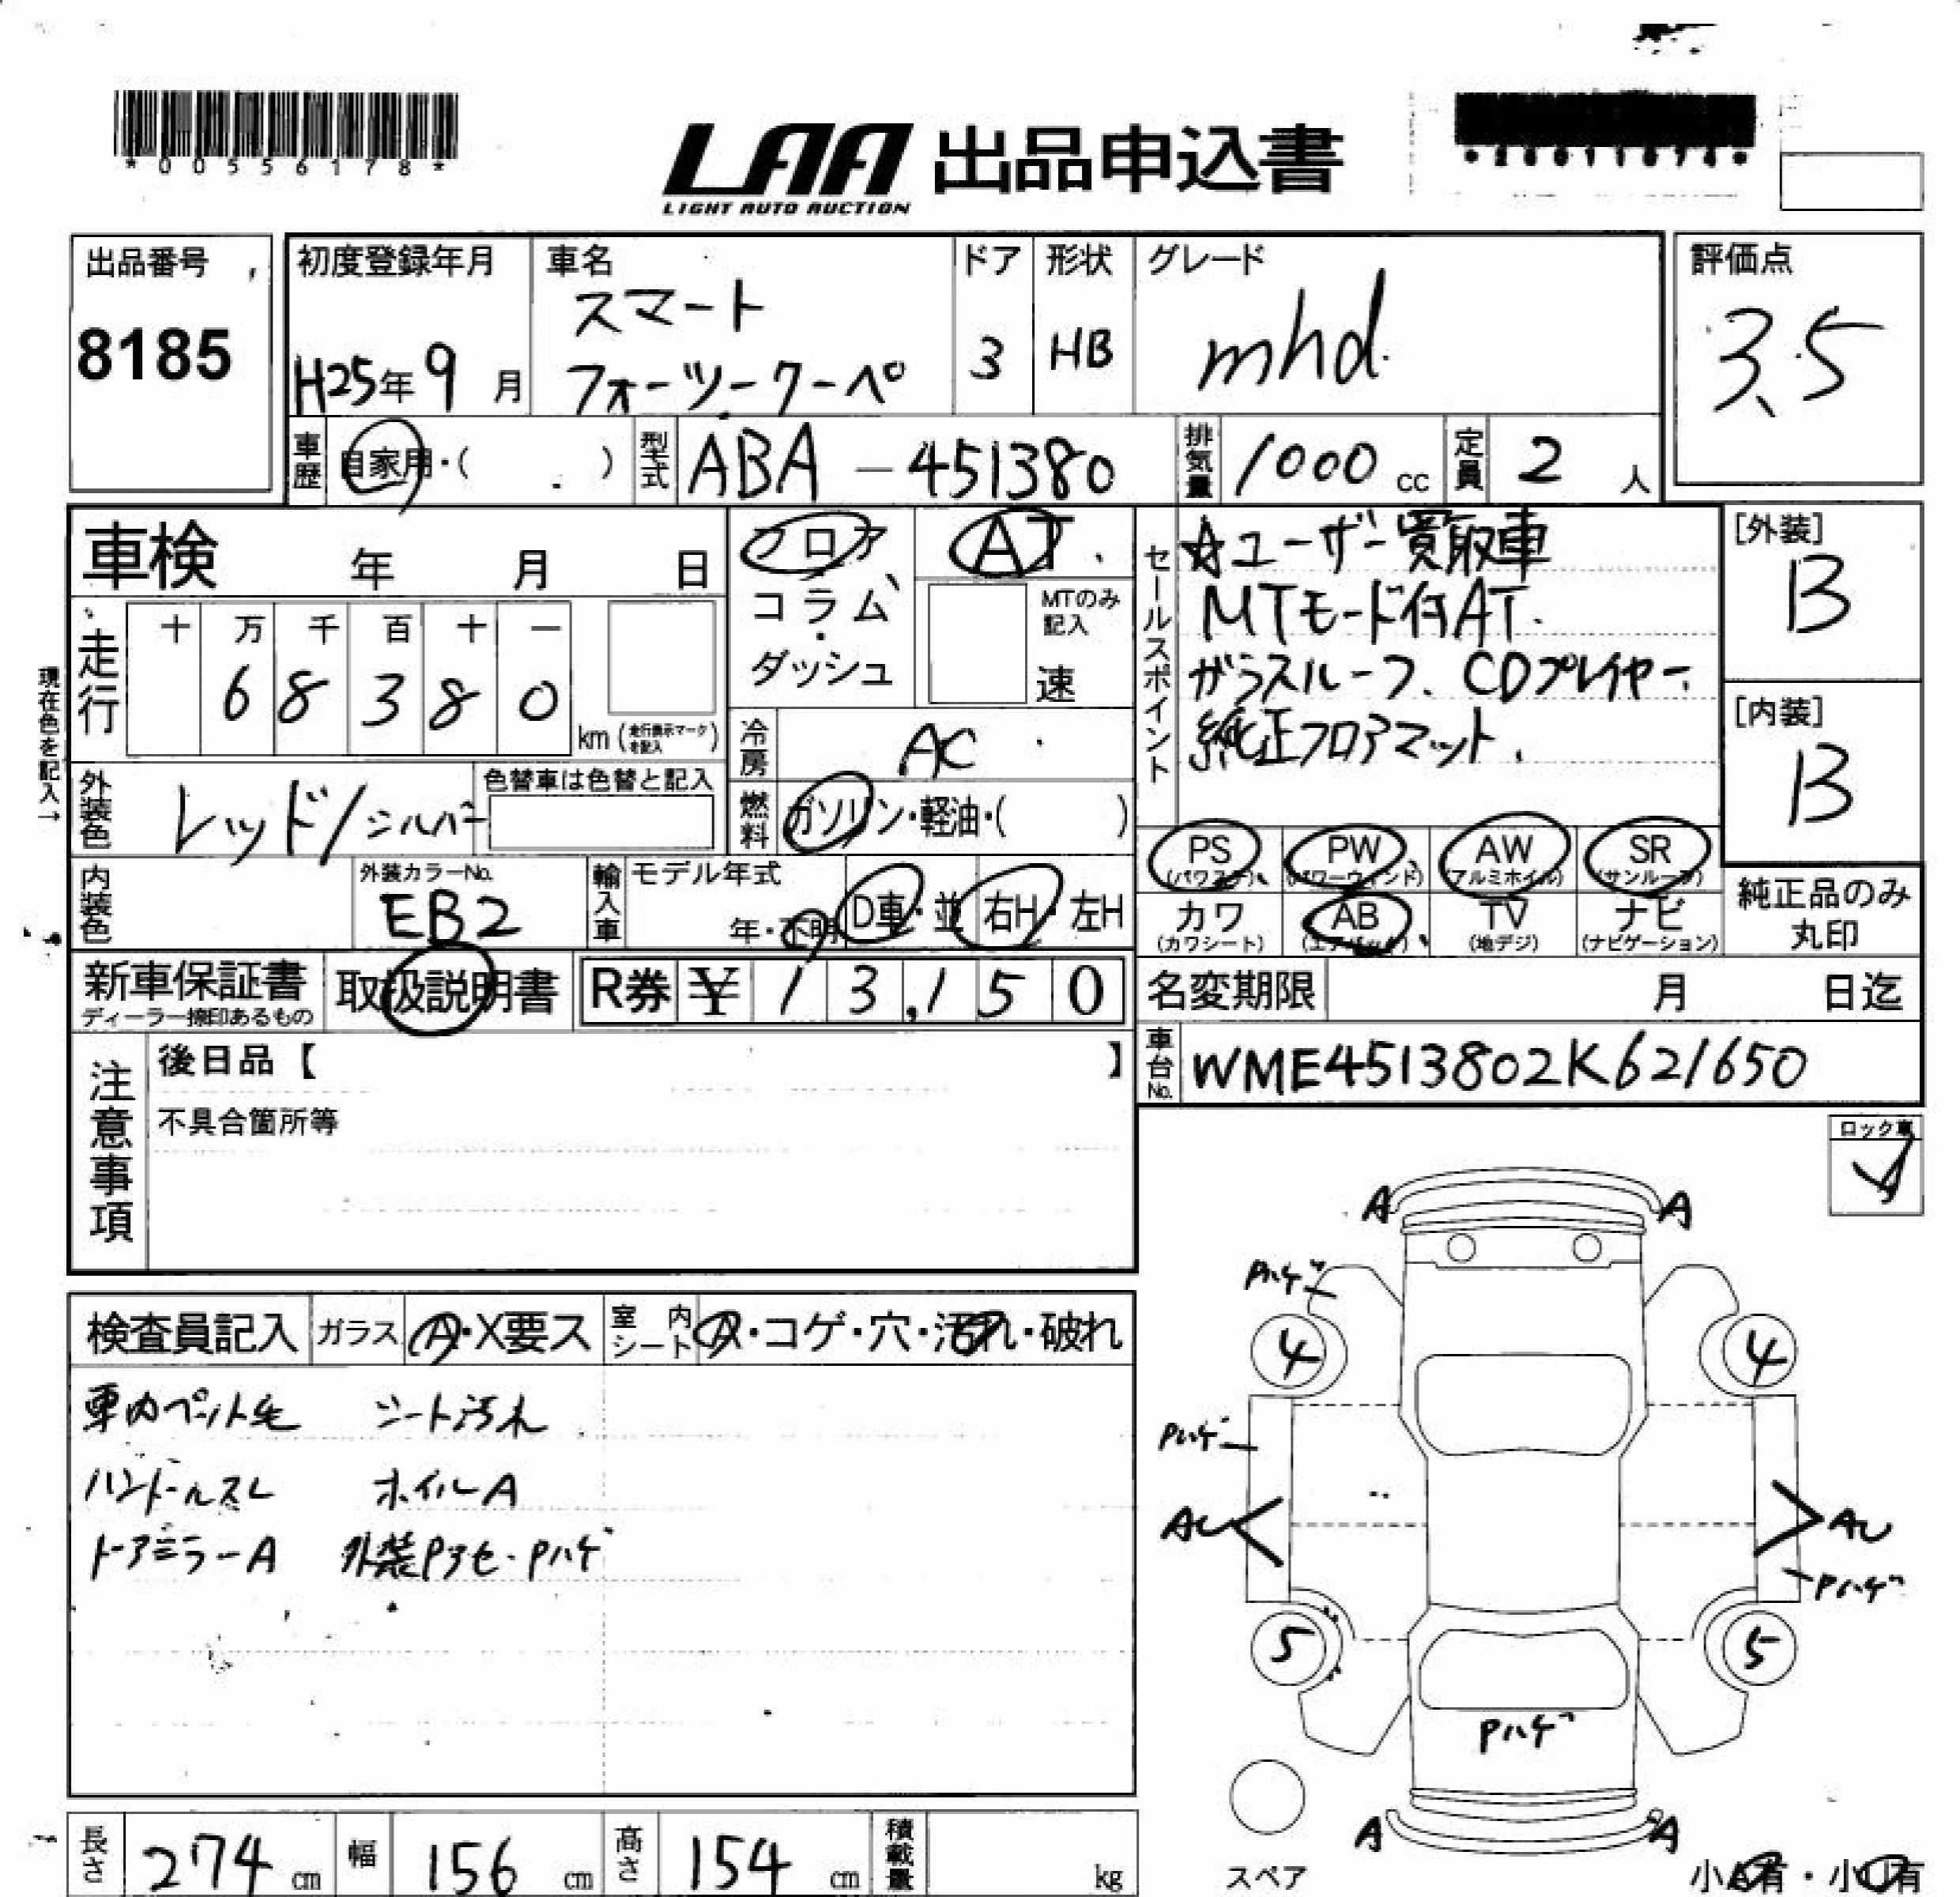 *00556178*
LAA 出品申込書
LIGHT AUTO AUCTION
出品番号
8185
初度登録年月
H25年9月
車名
スマート
フォーツークーペ
ドア
3
形状
HB
グレード
mhd
評価点
3.5
車歴
自家用・( )
型式
ABA-451380
排気量
1000 cc
定員
2 人
車検 年 月 日
フロア
コラム・
ダッシュ
AT
MTのみ
記入
速
セールスポイント
☆ユーザー買取車
MTモード付AT.
ガラスルーフ、CDプレイヤー、
純正フロアマット、
[外装]
B
[内装]
B
現在色を記入→
走行
十 万 千 百 十 一
6 8 3 8 0
km(走行表示マークを記入)
冷房
AC
外装色
レッド/シルバー
色替車は色替と記入
燃料
ガソリン・軽油・( )
PS PW AW SR
(パワステ) (パワーウィンド) (アルミホイル) (サンルーフ)
カワ AB TV ナビ
(カワシート) (エアバック) (地デジ) (ナビゲーション)
純正品のみ
丸印
内装色
外装カラーNo.
EB2
輸入車
モデル年式
年・不明
D車・並
右H・左H
新車保証書
ディーラー捺印あるもの
取扱説明書
R券 ¥ 13,150
名変期限 月 日迄
車台No.
WME4513802K621650
注意事項
後日品【 】
不具合箇所等
ロック車
検査員記入
ガラス
A・X要ス
室内
シート
A・コゲ・穴・汚れ・破れ
車内ペット毛 シート汚れ
ハンドルスレ ホイルA
ドアミラーA 外装Pアセ・Pハゲ
A A
Pハゲ
4 4
Pハゲ
AU AU
Pハゲ
5 5
Pハゲ
A A
スペア
小A有・小U有
長さ
274 cm
幅
156 cm
高さ
154 cm
積載量
kg